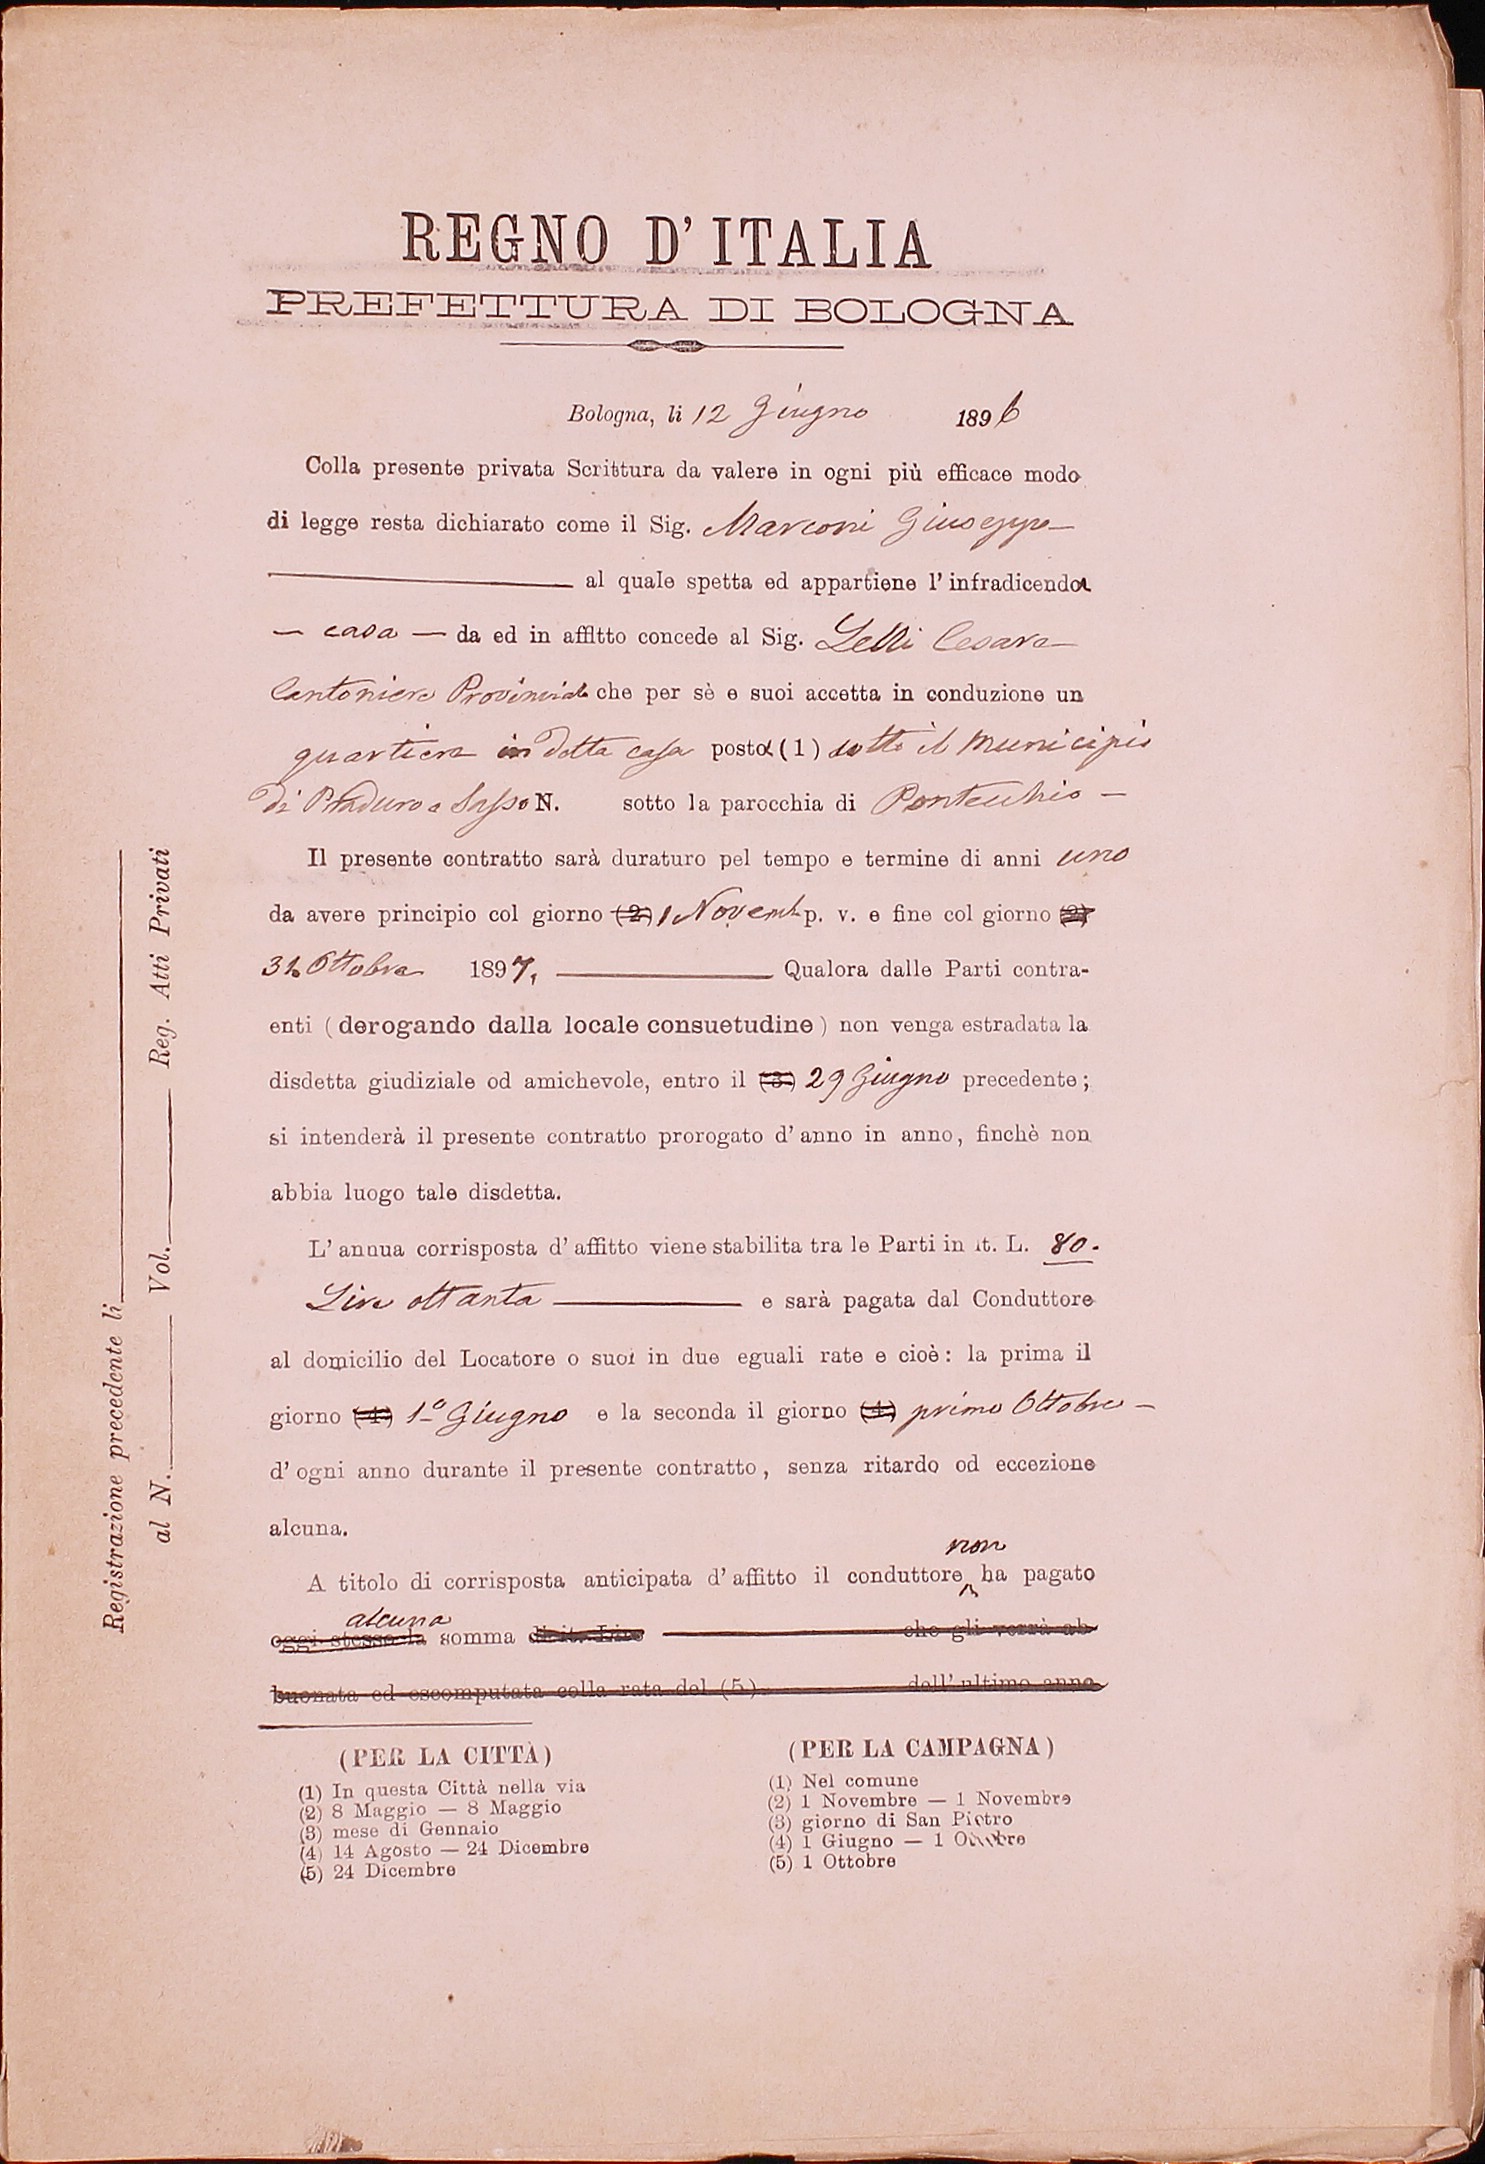 REGNO D'ITALIA
PREFETTURA DI BOLOGNA
Bologna, li 12 Giugno 1896
Colla presente privata Scrittura da valere in ogni più efficace modo
di legge resta dichiarato come il Sig. Marconi Giuseppe
al quale spetta ed appartiene l'infradicenda
— casa — da ed in affitto concede al Sig. Lelli Cesare
Cantoniere Provinciale che per sè e suoi accetta in conduzione un
quartiere in detta casa posta (1) sotto il Municipio
di Praduro e Sasso N. sotto la parocchia di Pontecchio —
Il presente contratto sarà duraturo pel tempo e termine di anni uno
da avere principio col giorno (2) 1 Novemb p. v. e fine col giorno (2)
31 Ottobre 1897, Qualora dalle Parti contra-
enti (derogando dalla locale consuetudine) non venga estradata la
disdetta giudiziale od amichevole, entro il (3) 29 Giugno precedente;
si intenderà il presente contratto prorogato d'anno in anno, finchè non
abbia luogo tale disdetta.
L'annua corrisposta d'affitto viene stabilita tra le Parti in it. L. 80.
Lire ottanta e sarà pagata dal Conduttore
al domicilio del Locatore o suoi in due eguali rate e cioè: la prima il
giorno (4) 1º Giugno e la seconda il giorno (4) primo Ottobre —
d'ogni anno durante il presente contratto, senza ritardo od eccezione
alcuna.
non
A titolo di corrisposta anticipata d'affitto il conduttore ha pagato
alcuna
oggi stesso la somma di it. Lire che gli verrà ab
buonata ed escomputata colla rata del (5) dell'ultimo anno
(PER LA CITTÀ)
(1) In questa Città nella via
(2) 8 Maggio — 8 Maggio
(3) mese di Gennaio
(4) 14 Agosto — 24 Dicembre
(5) 24 Dicembre
(PER LA CAMPAGNA)
(1) Nel comune
(2) 1 Novembre — 1 Novembre
(3) giorno di San Pietro
(4) 1 Giugno — 1 Ottobre
(5) 1 Ottobre
Registrazione precedente li
al N. Vol. Reg. Atti Privati